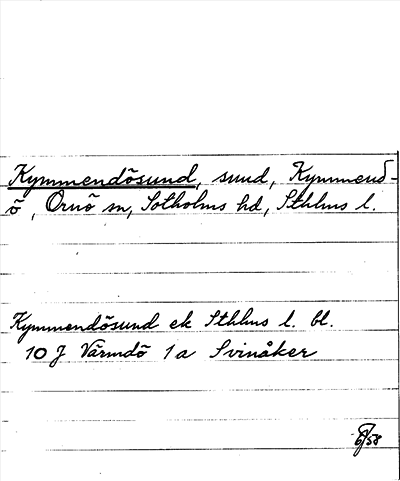 Kymmendösund, sund, Kymmend-
ö, Ornö sn, Sotholms hd, Sthlms l.
Kymmendösund ek Sthlms l. bl.
10 J Värmdö 1a Svinåker